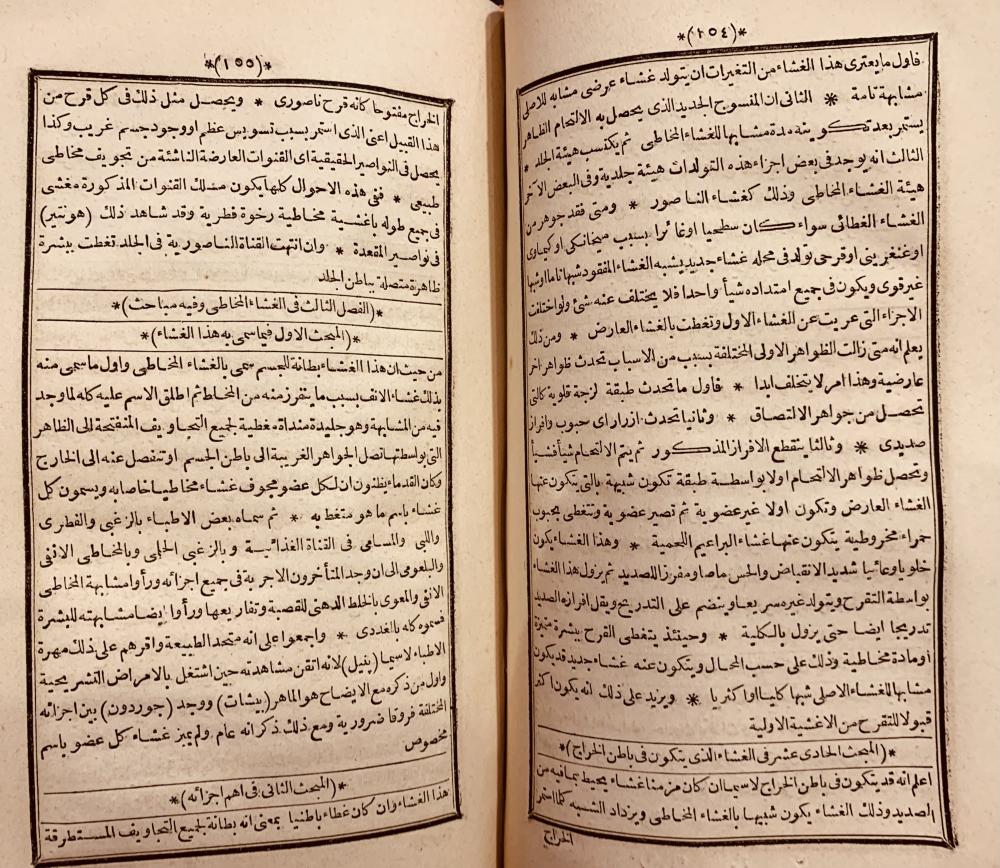 *(١٥٤)*
فاول ما يعترى هذا الغشاء من التغيرات ان يتولد غشاء عرضى مشابه للاصلى
مشابهة تامة * الثانى ان المنسوج الجديد الذى يحصل به الالتحام الظاهر
يستمر بعد تكوينه مدة مشابها للغشاء المخاطى ثم يكتسب هيئة الجلد *
الثالث انه يوجد فى بعض اجزاء هذه التولدات هيئة جلدية وفى البعض الآخر
هيئة الغشاء المخاطى وذلك كغشاء الناصور * ومتى فقد جوهر من
الغشاء الغطائى سواء كان سطحيا اوغائرا بسبب ميخانيكى اوكيماوى
اوغنغرينى اوقرحى تولد فى محله غشاء جديد يشبه الغشاء المفقود شبها تاما اوشبها
غير قوى ويكون فى جميع امتداده شيأ واحدا فلا يختلف عنه شئ ولو اختلفت
الاجزاء التى عريت عن الغشاء الاول وتغطت بالغشاء العارض * ومن ذلك
يعلم انه متى زالت الظواهر الاولى المختلفة بسبب من الاسباب تحدث ظواهر اخر
عارضية وهذا امر لا يتخلف ابدا * فاول ما تحدث طبقة لزجة قلوية كالتى
تحصل من جواهر الالتصاق * وثانيا تحدث ازرار اى حبوب وافراز
صديدى * وثالثا ينقطع الافراز المذكور ثم يتم الالتحام شيأ فشيأ
وتحصل ظواهر الالتحام اولا بواسطة طبقة تكون شبيهة بالتى يتكون عنها
الغشاء العارض وتكون اولا غير عضوية ثم تصير عضوية وتتغطى بحبوب
حمراء مخروطية يتكون عنها غشاء البراعيم اللحمية * وهذا الغشاء يكون
خلويا وعائيا شديد الانقباض والحس ماصا ومفرزا للصديد ثم يزول هذا الغشاء
بواسطة التقرح ويتولد غيره سريعا وينضم على التدريج ويقل افرازه الصديد
تدريجا ايضا حتى يزول بالكلية * وحينئذ يتغطى القرح ببشرة متميزة
أومادة مخاطية وذلك على حسب المحال ويتكون عنه غشاء جديد قد يكون
مشابها للغشاء الاصلى شبها كليا او اكثريا * ويزيد على ذلك انه يكون اكثر
قبولا للتقرح من الاغشية الاولية
*(المبحث الحادى عشر فى الغشاء الذى يتكون فى باطن الخراج)*
اعلم انه قد يتكون فى باطن الخراج لاسيما ان كان مزمنا غشاء يحيط بما فيه من
الصديد وذلك الغشاء يكون شبيها بالغشاء المخاطى ويزداد الشبه كلما استمر
الخراج
*(١٥٥)*
الخراج مفتوحا كانه قرح ناصورى * ويحصل مثل ذلك فى كل قرح من
هذا القبيل اعنى الذى استمر بسبب تسويس عظم او وجود جسم غريب وكذا
يحصل فى النواصير الحقيقية اى القنوات العارضة الناشئة من تجويف مخاطى
طبيعى * ففى هذه الاحوال كلها يكون مسلك القنوات المذكورة مغشى
فى جميع طوله باغشية مخاطية رخوة فطرية وقد شاهد ذلك (هونتير)
فى نواصير المقعدة * وان انتهت القناة الناصورية فى الجلد تغطت ببشرة
ظاهرة متصلة بباطن الجلد
*(الفصل الثالث فى الغشاء المخاطى وفيه مباحث)*
*(المبحث الاول فيما سمى به هذا الغشاء)*
من حيث ان هذا الغشاء بطانة للجسم سمى بالغشاء المخاطى واول ما سمى منه
بذلك غشاء الانف بسبب ما يتفرز منه من المخاط ثم اطلق الاسم عليه كله لما وجد
فيه من المشابهة وهو جليدة منداة مغطية لجميع التجاويف المنفتحة الى الظاهر
التى بواسطتها تصل الجواهر الغريبة الى باطن الجسم او تنفصل عنه الى الخارج
وكان القدماء يظنون ان لكل عضو مجوف غشاء مخاطيا خاصا به ويسمون كل
غشاء باسم ما هو متغط به * ثم سماه بعض الاطباء بالزغبى والفطرى
واللبى والمسامى فى القناة الغذائية و بالزغبى الحلمى وبالمخاطى الانفى
والبلعومى الى ان وجد المتأخرون الاجربة فى جميع اجزائه ورأوا مشابهة المخاطى
الانفى والمعوى بالخلط الدهنى للقصبة وتفاريعها ورأوا ايضا مشابهته للبشرة
فسموه كله بالغددى * واجمعوا على انه متحد الطبيعه واقرهم على ذلك مهرة
الاطباء لاسيما (پنيل) لانه اتقن مشاهدته حين اشتغل بالامراض التشريحية
واول من ذكره مع الايضاح هو الماهر (بيشات) ووجد (جوردون) بين اجزائه
المختلفة فروقا ضرورية ومع ذلك ذكر انه عام ولم يميز غشاء كل عضو باسم
مخصوص
*(المبحث الثانى فى اهم اجزائه)*
هذا الغشاء وان كان غطاء باطنيا بمعنى انه بطانة لجميع التجاويف المستطرقة